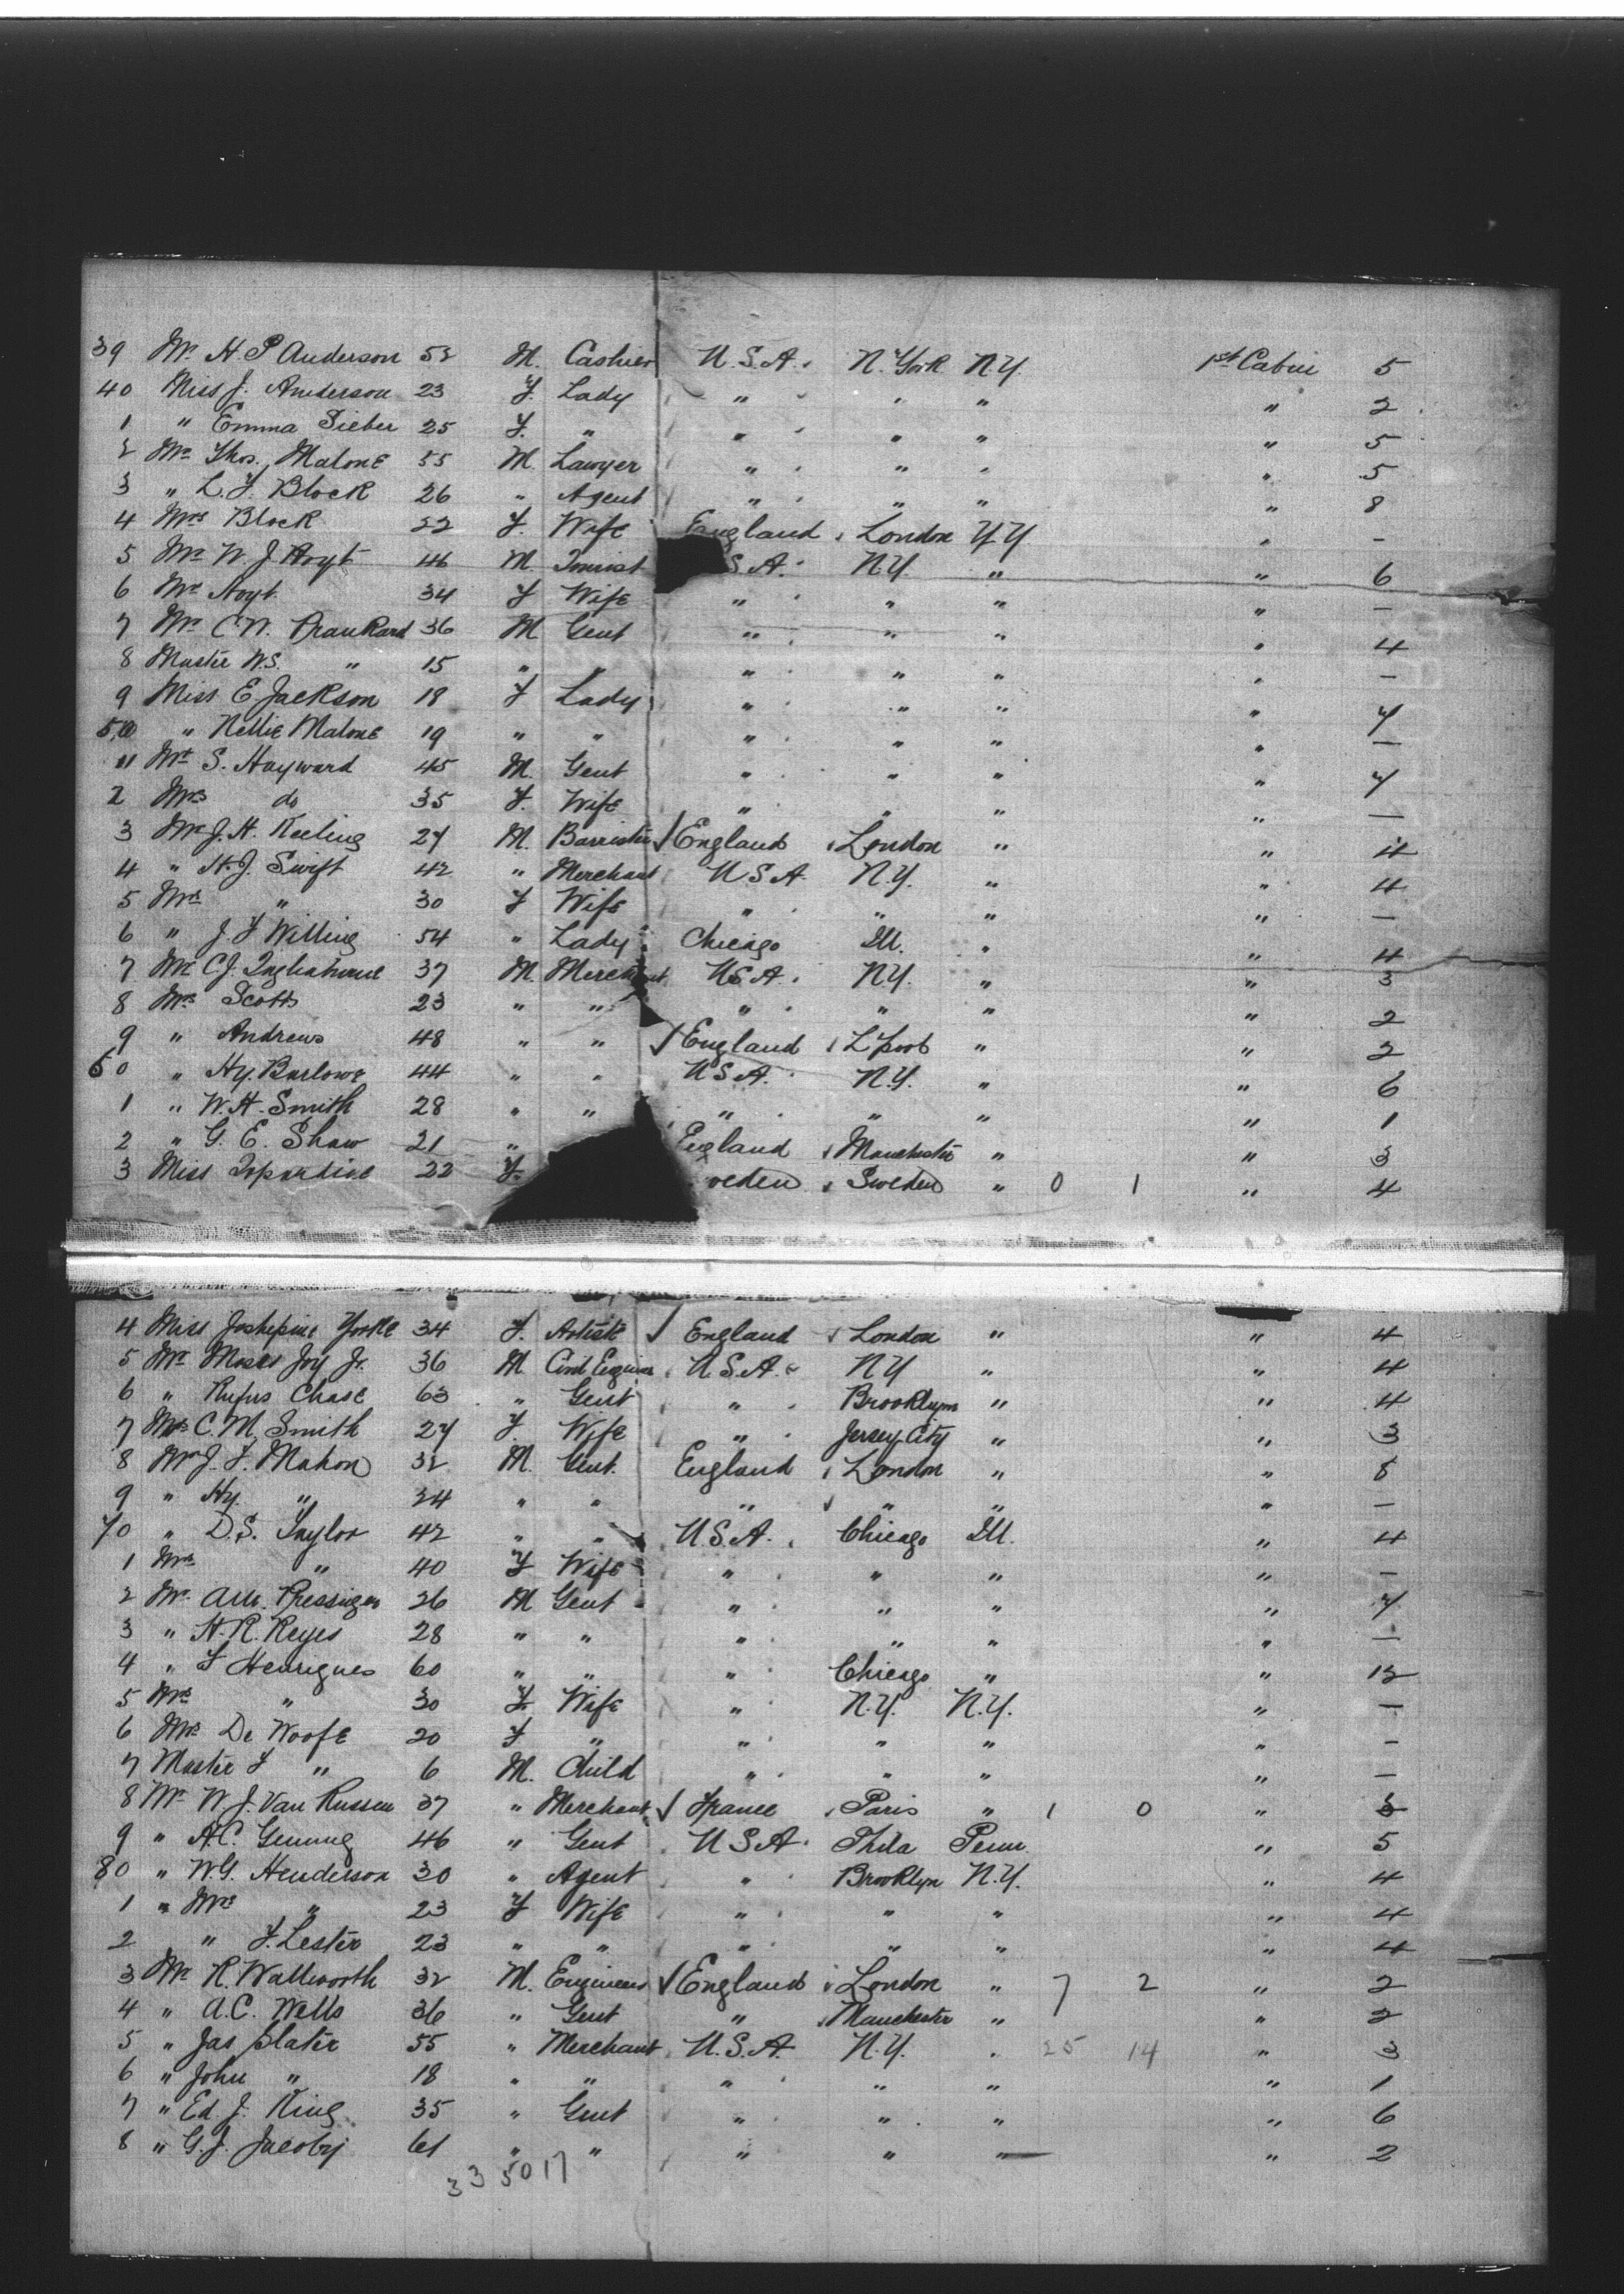 39 Mr H. P Anderson 53 M. Cashier U.S.A. N. York N.Y. 1st Cabin 5
40 Miss J. Anderson 23 F. Lady " " " " 2
1 " Emma Sieber 25 F. " " " " " 5
2 Mr Thos. Malone 55 M. Lawyer " " " " 5
3 " L. F. Block 26 " Agent " " " " 8
4 Mrs Block 22 F. Wife England London " –
5 Mr W. J Hoyt 46 M. Tourist S.A. N.Y. " " 6
6 Mrs Hoyt 34 F Wife " " " " –
7 Mr C.W. 36 M Gent " " " " 4
8 Master W.S. " 15 " " " " " " –
9 Miss E Jackson 18 F Lady " " " " 7
50 " Nellie Malone 19 " " " " " " –
11 Mr S. Hayward 45 M. Gent " " " " 7
2 Mrs do 35 F. Wife " " " " –
3 Mr J. H. Keeling 27 M. Barrister England London " " 4
4 " H. J. Swift 42 " Merchant U S A. N.Y. " " 4
5 Mrs " 30 F Wife " " " " –
6 " J. F Willing 54 " Lady Chicago Ill. " " 4
7 Mr C. J. 37 M. Merchant U.S.A. N.Y. " " 3
8 Mrs Scott 23 " " " " " " 2
9 " Andrews 48 " " England L'pool " " 2
60 " Hy. Barlowe 44 " " U.S.A. N.Y. " " 6
1 " W. H. Smith 28 " " " " " " 1
2 " G. E. Shaw 21 " England Manchester " " 3
3 Miss 22 F. eden Sweden " 0 1 " 4
4 Miss Joshepine Yorke 34 F. Artiste England London " " 4
5 Mr Moses Joy Jr. 36 M Civil U.S.A. N Y " " 4
6 " Rufus Chase 63 " Gent " Brooklyn " " 4
7 Mrs C. M. Smith 27 F. Wife " Jersey City " " 3
8 Mr J. F. Mahon 32 M. Gent. England London " " 8
9 " Hy. " 24 " " " " " " –
70 " D. S. Taylor 42 " " U.S.A. Chicago Ill. " 4
1 Mrs " 40 F Wife " " " " –
2 Mr 26 M Gent " " " " 7
3 " H. R. Keyes 28 " " " " " " –
4 " F Henriques 60 " " " Chicago " " 12
5 Mrs " 30 F. Wife " N.Y. N.Y. " –
6 Mrs De Woofe 20 F " " " " " –
7 Master F " 6 M. Child " " " " –
8 Mr W. J. Van Russen 37 " Merchant France Paris " 1 0 " 3
9 " A. C. Genung 46 " Gent U S A Phila Penn. " 5
80 " W. G. Henderson 30 " Agent " Brooklyn N.Y. " 4
1 " Mrs " 23 F Wife " " " " 4
2 " F. Lester 23 " " " " " " 4
3 Mr R. Wallworth 32 M. Engineer England London " 7 2 " 2
4 " A. C. Wells 36 " Gent " Manchester " " 2
5 " Jas Slater 55 " Merchant U.S.A. N.Y. " 25 14 " 3
6 " John " 18 " " " " " " 1
7 " Ed J. King 35 " Gent " " " " 6
8 " G. J. Jacoby 61 " " " " " " 2
33 50 17